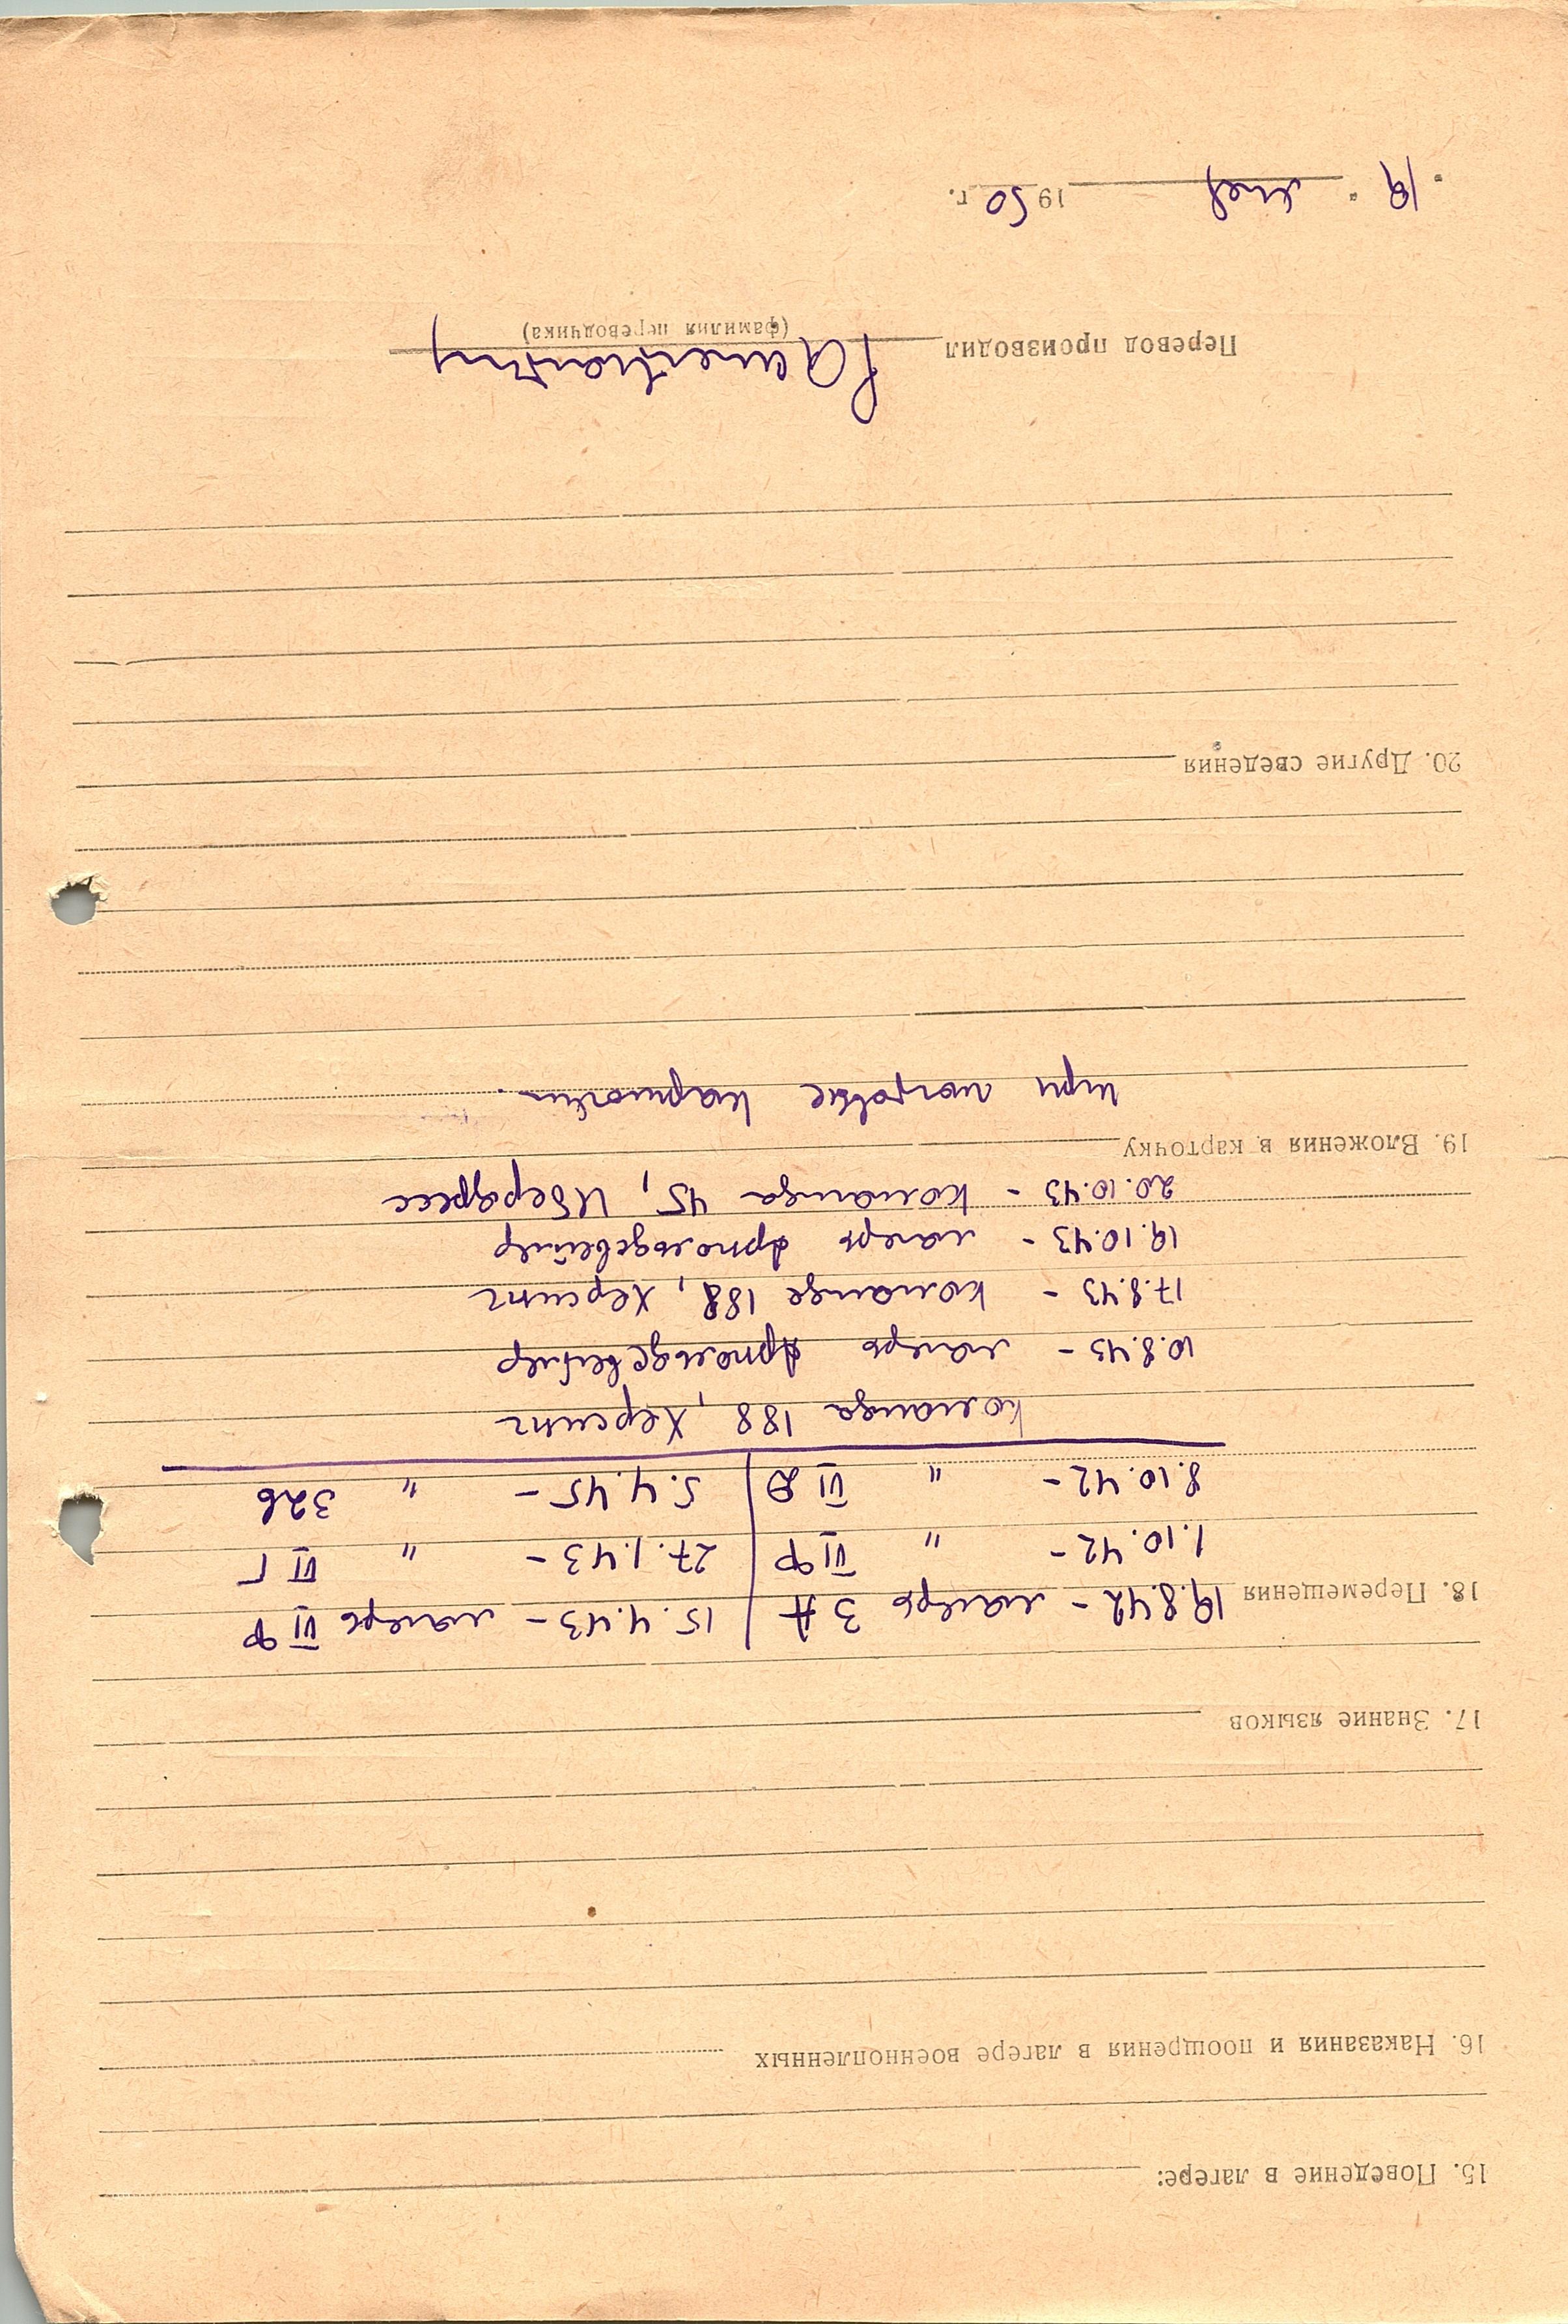 15. Поведение в лагере:
16. Наказания и поощрения в лагере военнопленных
17. Знание языков
18. Перемещения 19.8.42 - лагерь 3 А | 15.4.43 - лагерь VI Ф
1.10.42 - " VI Ф | 27.1.43 - " VI Г
8.10.42 - " VI Д | 5.4.45 - " 326
команда 188, Херсинг
10.8.43 - лагерь Арнольдсвейлер
17.8.43 - команда 188, Херсинг
19.10.43 - лагерь Арнольдсвейлер
20.10.43 - команда 45,
19. Вложения в карточку
три
20. Другие сведения
Перевод производил
(фамилия переводчика)
"19" мая 1950 г.